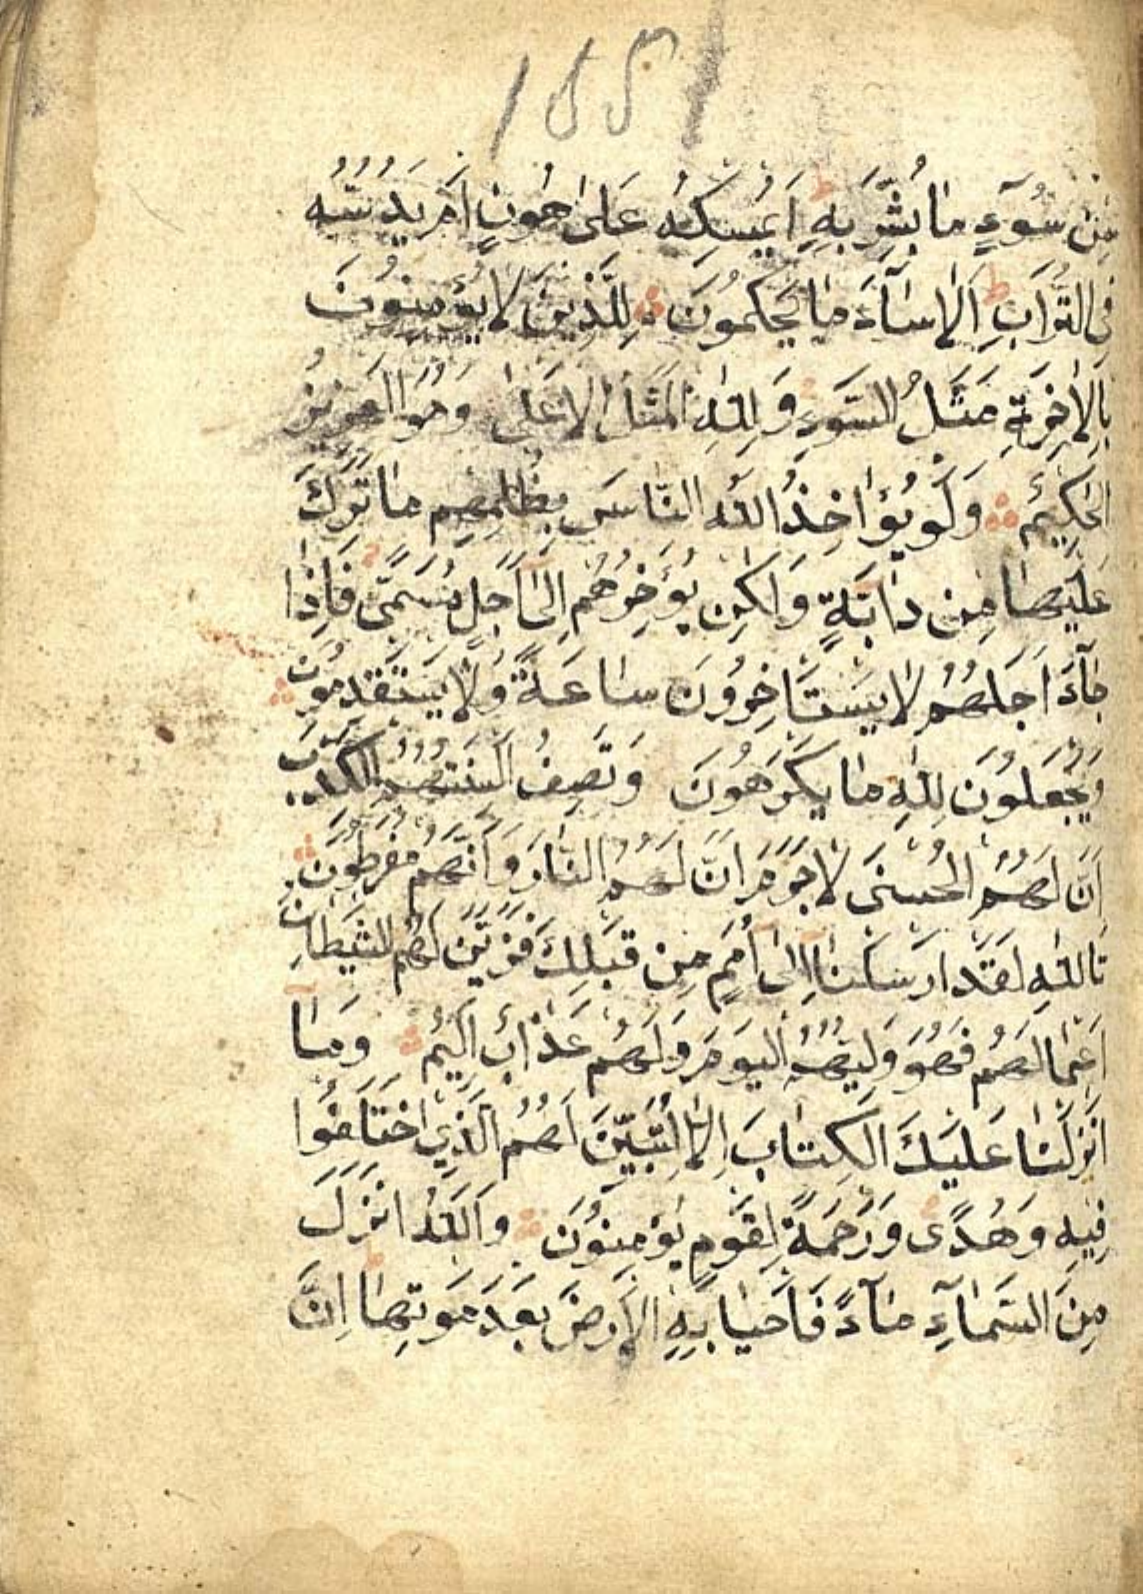 مِنْ سُوٓءِ مَا بُشِّرَ بِهِ ط اَيُمْسِكُهُ عَلٰى هُونٍ اَمْ يَدُسُّهُ
فِى التُّرَابِ ط اَلَا سَٓاءَ مَا يَحْكُمُونَ لِلَّذِينَ لَا يُؤْمِنُونَ
بِالْاٰخِرَةِ مَثَلُ السَّوْءِ وَلِلّٰهِ الْمَثَلُ الْاَعْلٰى وَهُوَ الْعَزِيزُ
الْحَكِيمُ وَلَوْ يُؤَاخِذُ اللّٰهُ النَّاسَ بِظُلْمِهِمْ مَا تَرَكَ
عَلَيْهَا مِنْ دَابَّةٍ وَلٰكِنْ يُؤَخِّرُهُمْ اِلٰٓى اَجَلٍ مُسَمًّى فَاِذَا
جَٓاءَ اَجَلُهُمْ لَا يَسْتَاْخِرُونَ سَاعَةً وَلَا يَسْتَقْدِمُونَ
وَيَجْعَلُونَ لِلّٰهِ مَا يَكْرَهُونَ وَتَصِفُ اَلْسِنَتُهُمُ الْكَذِبَ
اَنَّ لَهُمُ الْحُسْنٰى لَا جَرَمَ اَنَّ لَهُمُ النَّارَ وَاَنَّهُمْ مُفْرَطُونَ
تَاللّٰهِ لَقَدْ اَرْسَلْنَا اِلٰٓى اُمَمٍ مِنْ قَبْلِكَ فَزَيَّنَ لَهُمُ الشَّيْطَانُ
اَعْمَالَهُمْ فَهُوَ وَلِيُّهُمُ الْيَوْمَ وَلَهُمْ عَذَابٌ اَلِيمٌ وَمَٓا
اَنْزَلْنَا عَلَيْكَ الْكِتَابَ اِلَّا لِتُبَيِّنَ لَهُمُ الَّذِي اخْتَلَفُوا
فِيهِ وَهُدًى وَرَحْمَةً لِقَوْمٍ يُؤْمِنُونَ وَاللّٰهُ اَنْزَلَ
مِنَ السَّمَٓاءِ مَٓاءً فَاَحْيَا بِهِ الْاَرْضَ بَعْدَ مَوْتِهَا اِنَّ